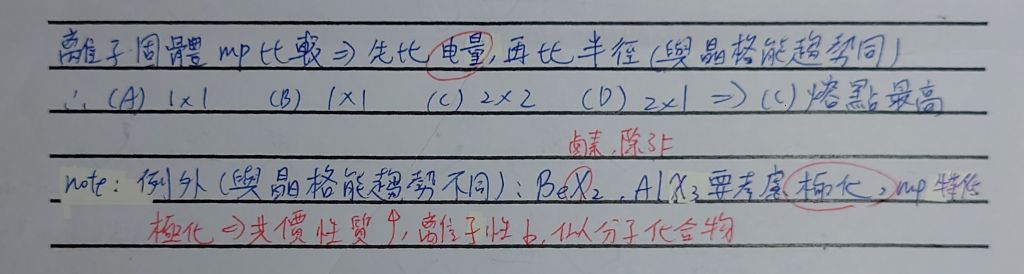 離子固體 mp 比較 ⇒ 先比电量,再比半徑(與晶格能趨勢同)
∴ (A) 1×1 (B) 1×1 (C) 2×2 (D) 2×1 ⇒ (C) 熔點最高
鹵素,除了F
note: 例外(與晶格能趨勢不同): BeX₂, AlX₃ 要考慮極化, mp 特低
極化 ⇒ 共價性質↑, 離子性↓, 似分子化合物